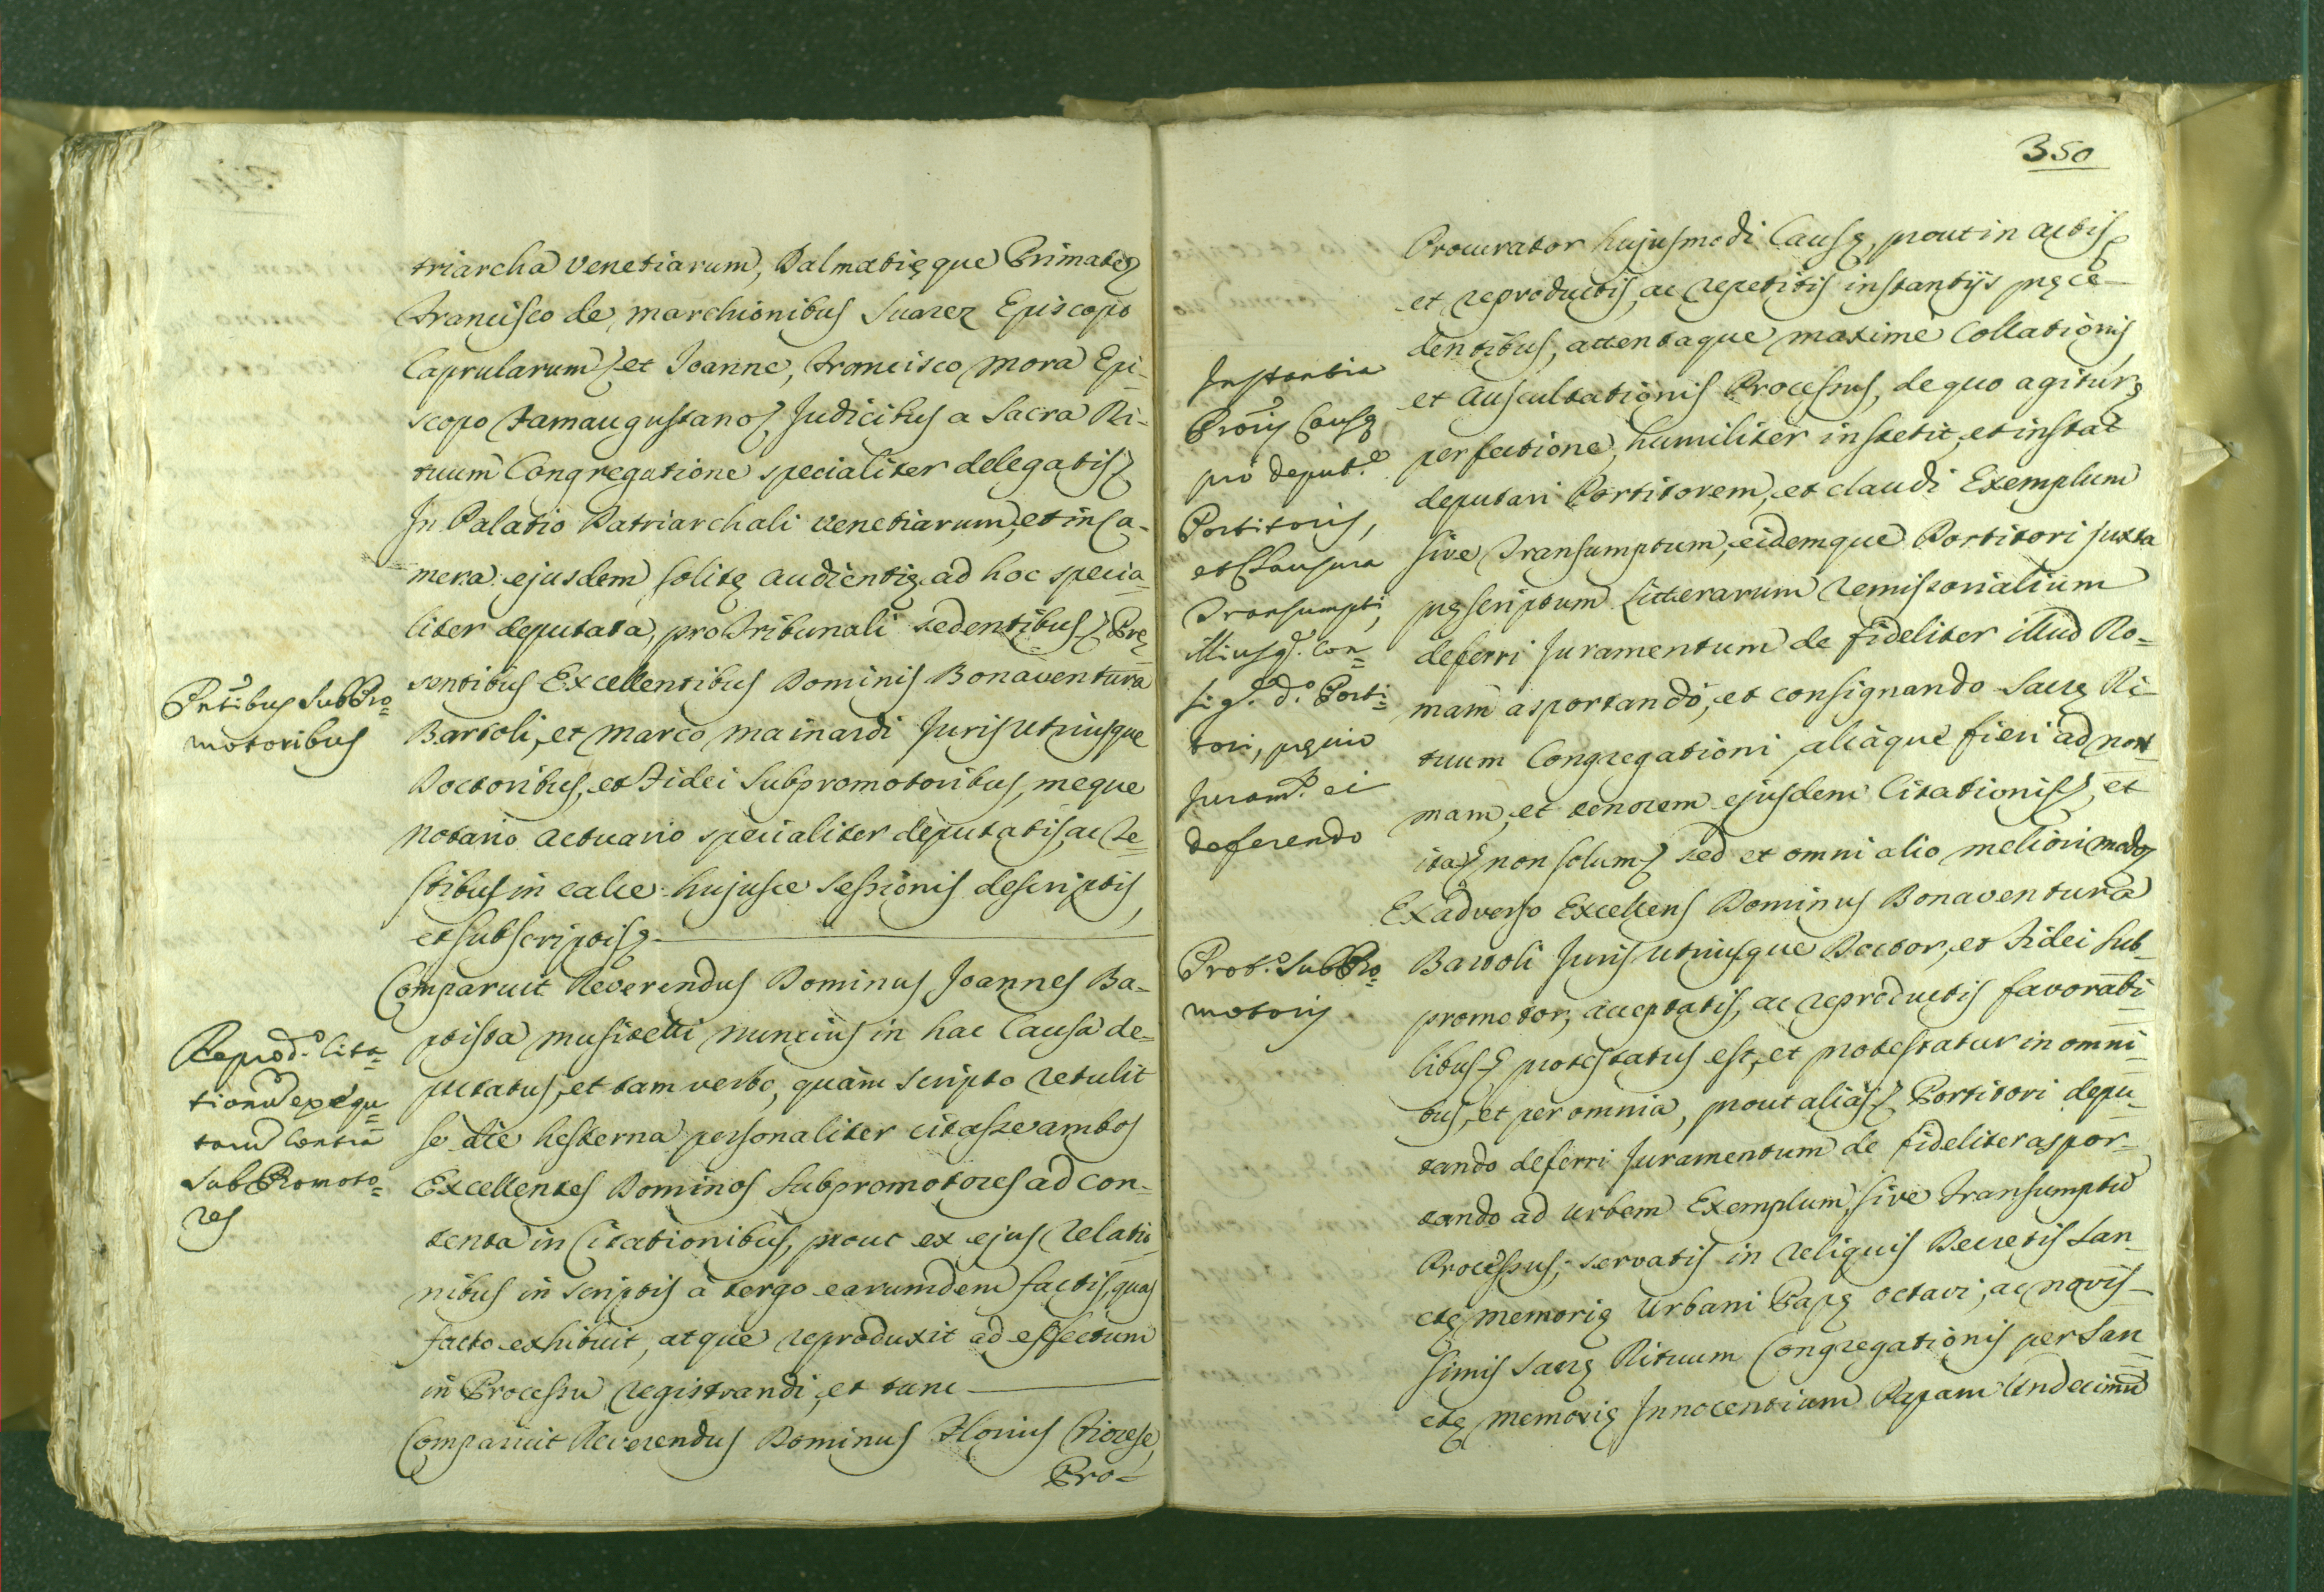 triarcha Venetiarum, Dalmatięque Primate,
Francisco de Marchionibus Suarez Episcopo
Caprularum, et Joanne, Francisco Mora Epi-
scopo Famaugustano, Judicibus a Sacra Ri-
tuum Congregatione specialiter delegatis,
In Palatio Patriarchali Venetiarum, et in Ca-
mera ejusdem solitę audientię ad hoc specia-
liter deputata, pro Tribunali sedentibus, Prę-
sentibus Excellentibus Dominis Bonaventura
Bartoli, et Marco Mainardi Juris Utriusque
Doctoribus, et Fidei Subpromotoribus, meque
Notario Actuario specialiter deputatis, ac Te-
stibus in calce hujusce Sessionis descriptis,
et subscriptis.
Comparuit Reverendus Dominus Joannes Ba-
ptista Musitelli Nuncius in hac Causa de-
putatus, et tam verbo, quàm scripto retulit
se die hesterna personaliter citasse ambos
Excellentes Dominos Subpromotores ad con-
tenta in Citationibus, prout ex ejus relatio-
nibus in scriptis à tergo earumdem factis, quas
facto exhibuit, atque reproduxit ad effectum
in Processu registrandi, et tunc
Comparuit Reverendus Dominus Florius
Pro-
Pñtibus SubPro-
motoribus
Reprod.o Cita-
tionũ exequu-
tarũ contra
SubPromoto-
res
350
Procurator hujusmodi Causę, prout in actis,
et reproductis, ac repetitis instantijs pręce-
dentibus, attentaque maxime Collationis,
et Auscultationis Processus, de quo agitur,
perfectione, humiliter institit, et instat
deputari Portitorem, et claudi Exemplum
sive Transumptum, eidemque Portitori juxta
pręscriptum Litterarum remissorialium
deferri Juramentum de fideliter illud Ro-
mam asportando, et consignando Sacrę Ri-
tuum Congregationi, aliàque fieri ad nor-
mam, et tenorem ejusdem Citationis, et
ita, non solum, sed et omni alio meliori modo,
Ex adverso Excellens Dominus Bonaventura
Bartoli Juris Utriusque Doctor, et Fidei Sub-
promotor, acceptatis, ac reproductis favorabi-
libus, protestatus est, et protestatur in omni-
bus, et per omnia, prout aliàs, Portitori depu-
tando deferri Juramentum de fideliter aspor-
tando ad Urbem Exemplum, sive Transumptũ
Processus; servatis in reliquis Decretis San-
ctę memorię Urbani Papę octavi, ac novis-
simis Sacrę Rituum Congregationis per San-
ctę memorię Innocentium Papam Undecimũ
Instantia
Prõris Causę
pro deput.e
Portitoris,
et Clausura
Transumpti,
illiusq. Con-
sig.e d.o Porti-
tori, pręvio
Juram.to ei
deferendo
Prot.o SubPro-
motoris